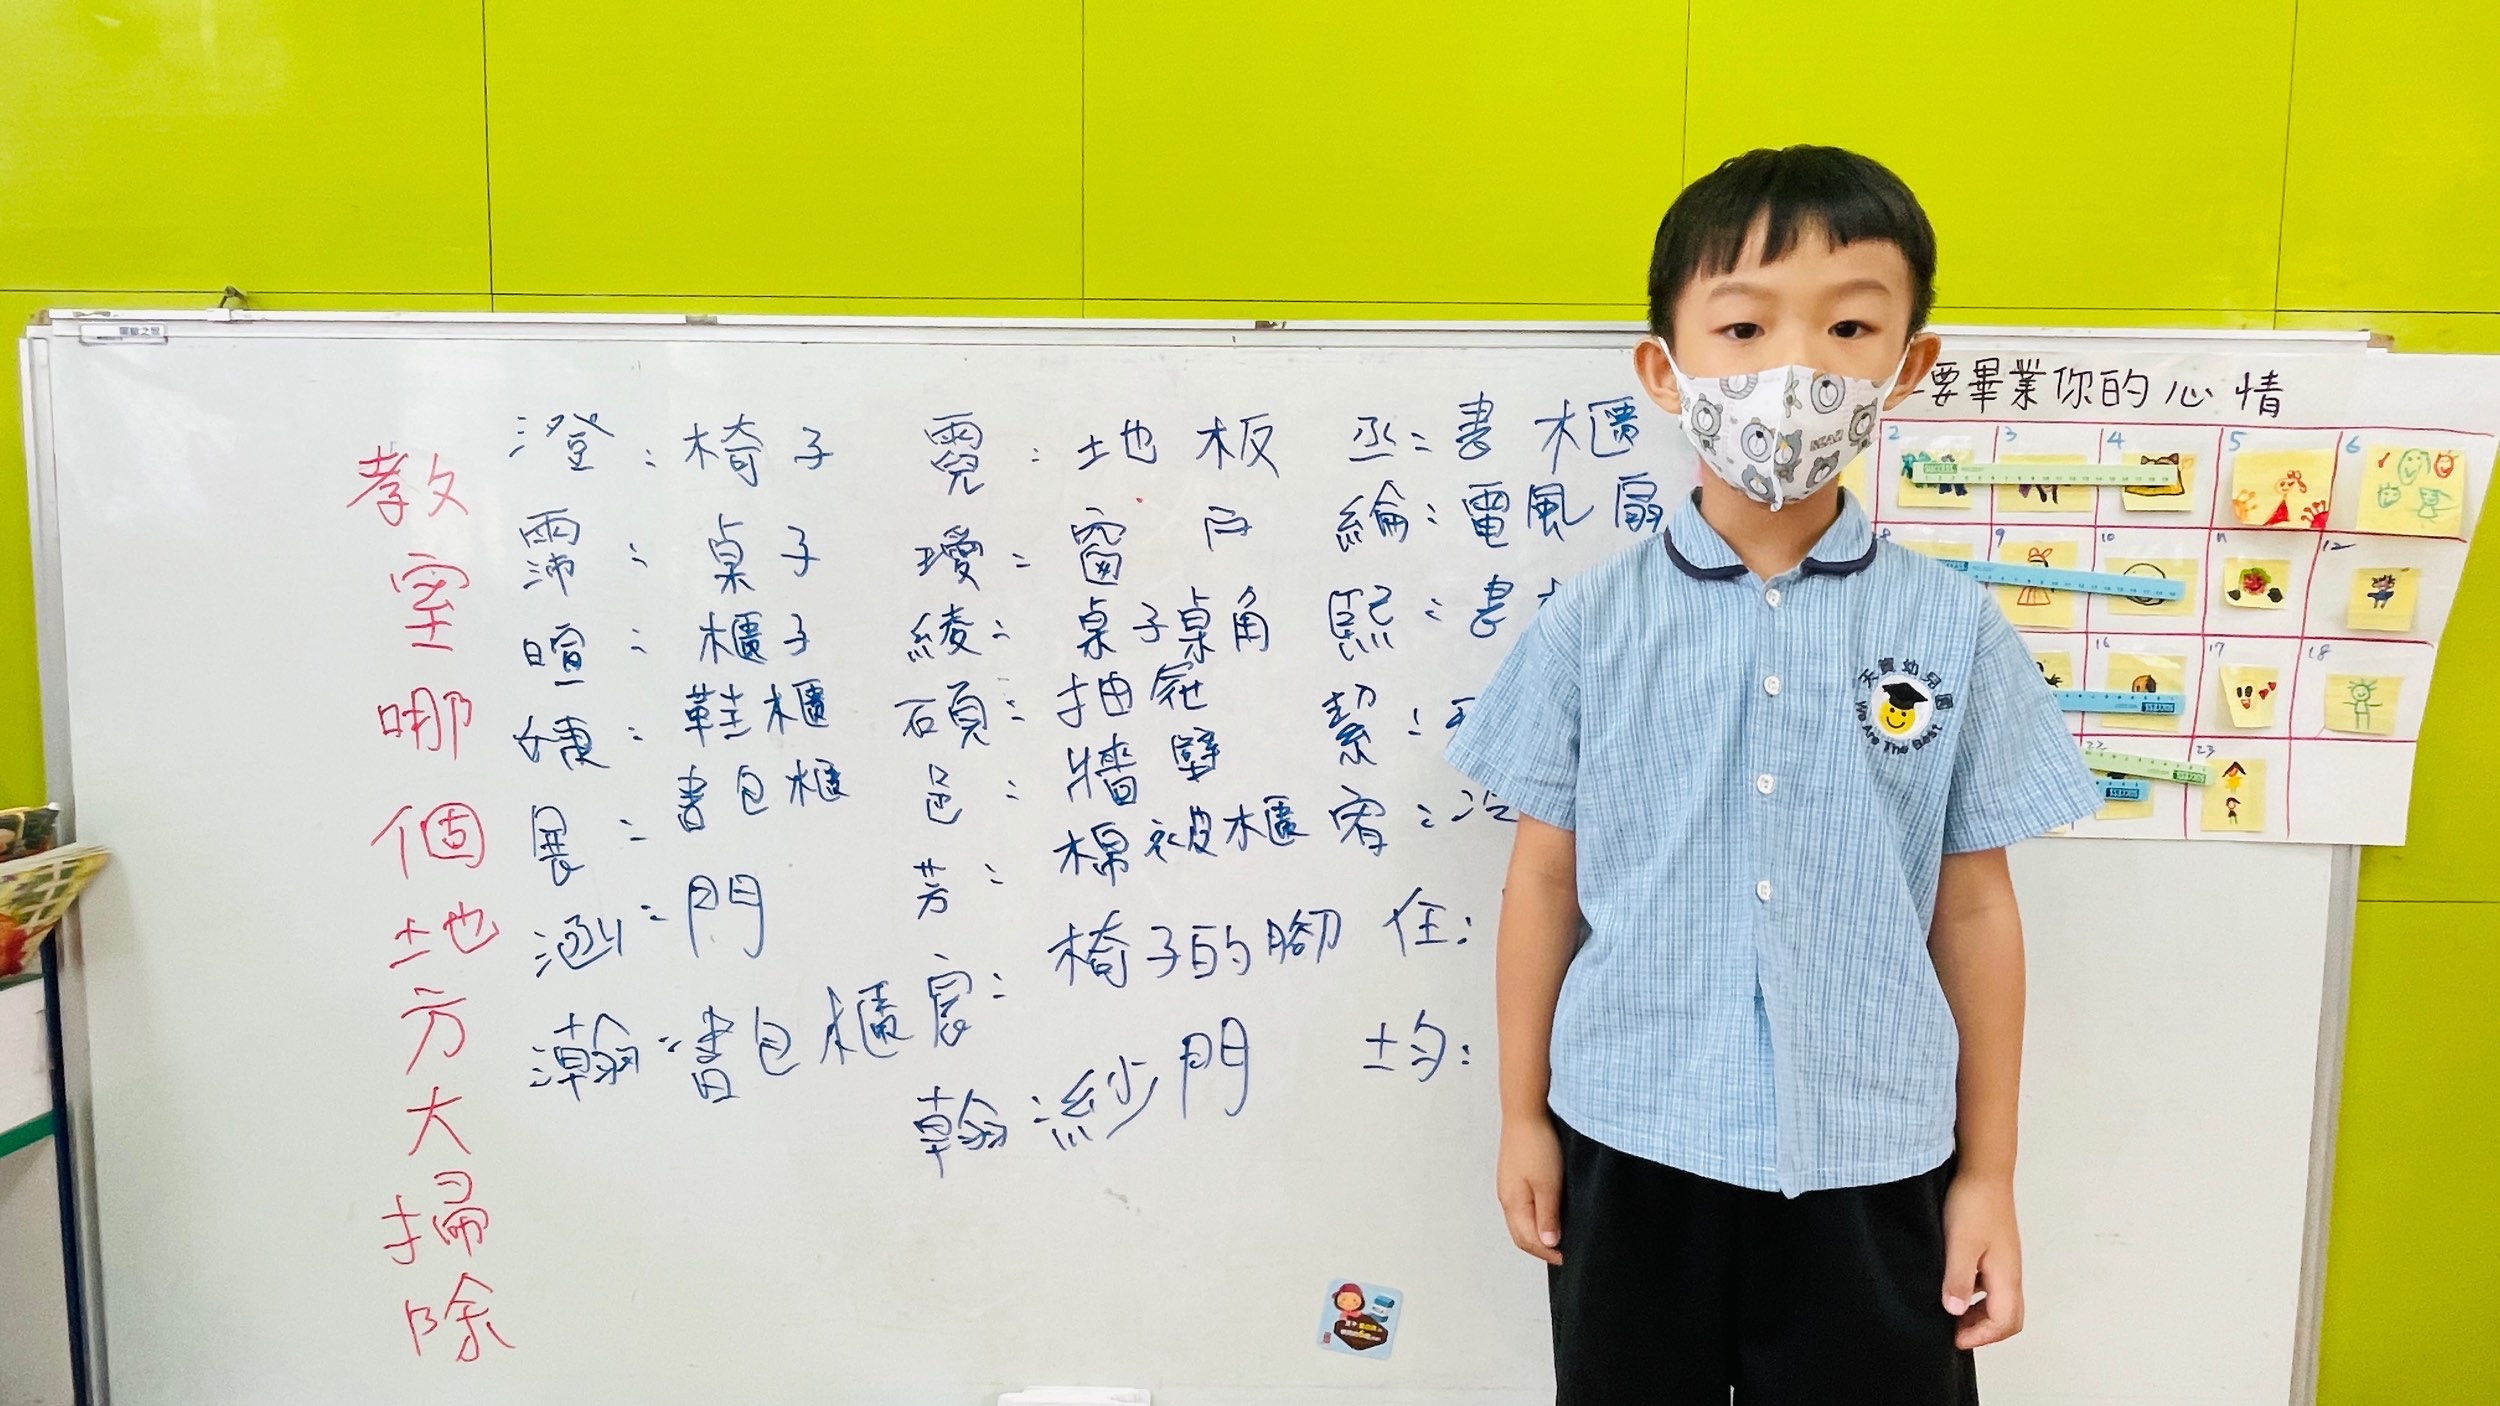 教室哪個地方大掃除
澄:椅子
霈:桌子
暄:櫃子
婕:鞋櫃
展:書包櫃
涵:門
瀚:書包櫃
霓:地板
璦:窗戶
綾:桌子桌角
碩:抽屜
邑:牆壁
芳:棉被櫃
宸:椅子的腳
翰:紗門
丞:書櫃
綸:電風扇
熙:書
絜:
宥:冷
住:
均:
要畢業你的心情
2 3 4 5 6
8 9 10 11 12
16 17 18
22 23
天寶幼兒園
We Are The Best